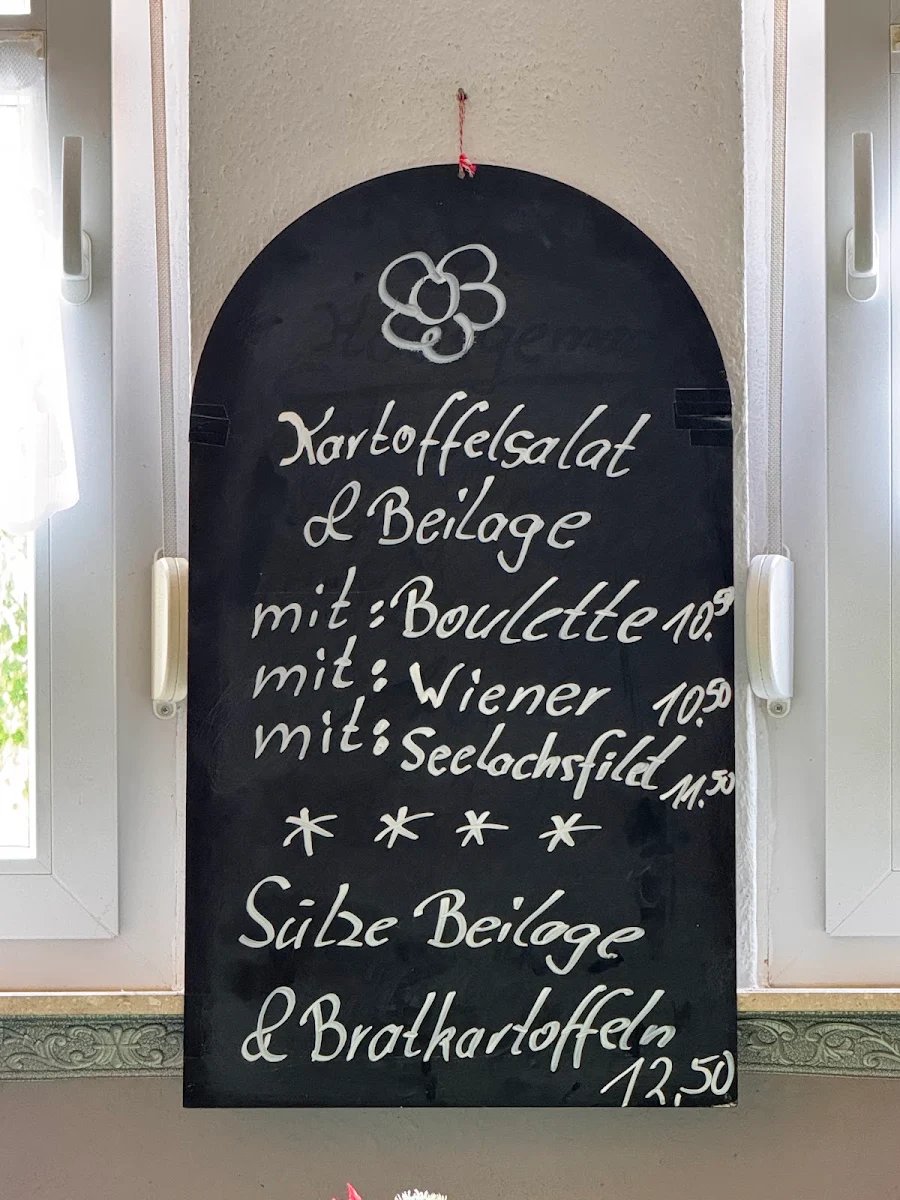 Kartoffelsalat
& Beilage
mit: Boulette 10.50
mit: Wiener 10.50
mit: Seelachsfilet 11.50
* * * *
Sülze Beilage
& Bratkartoffeln
12,50